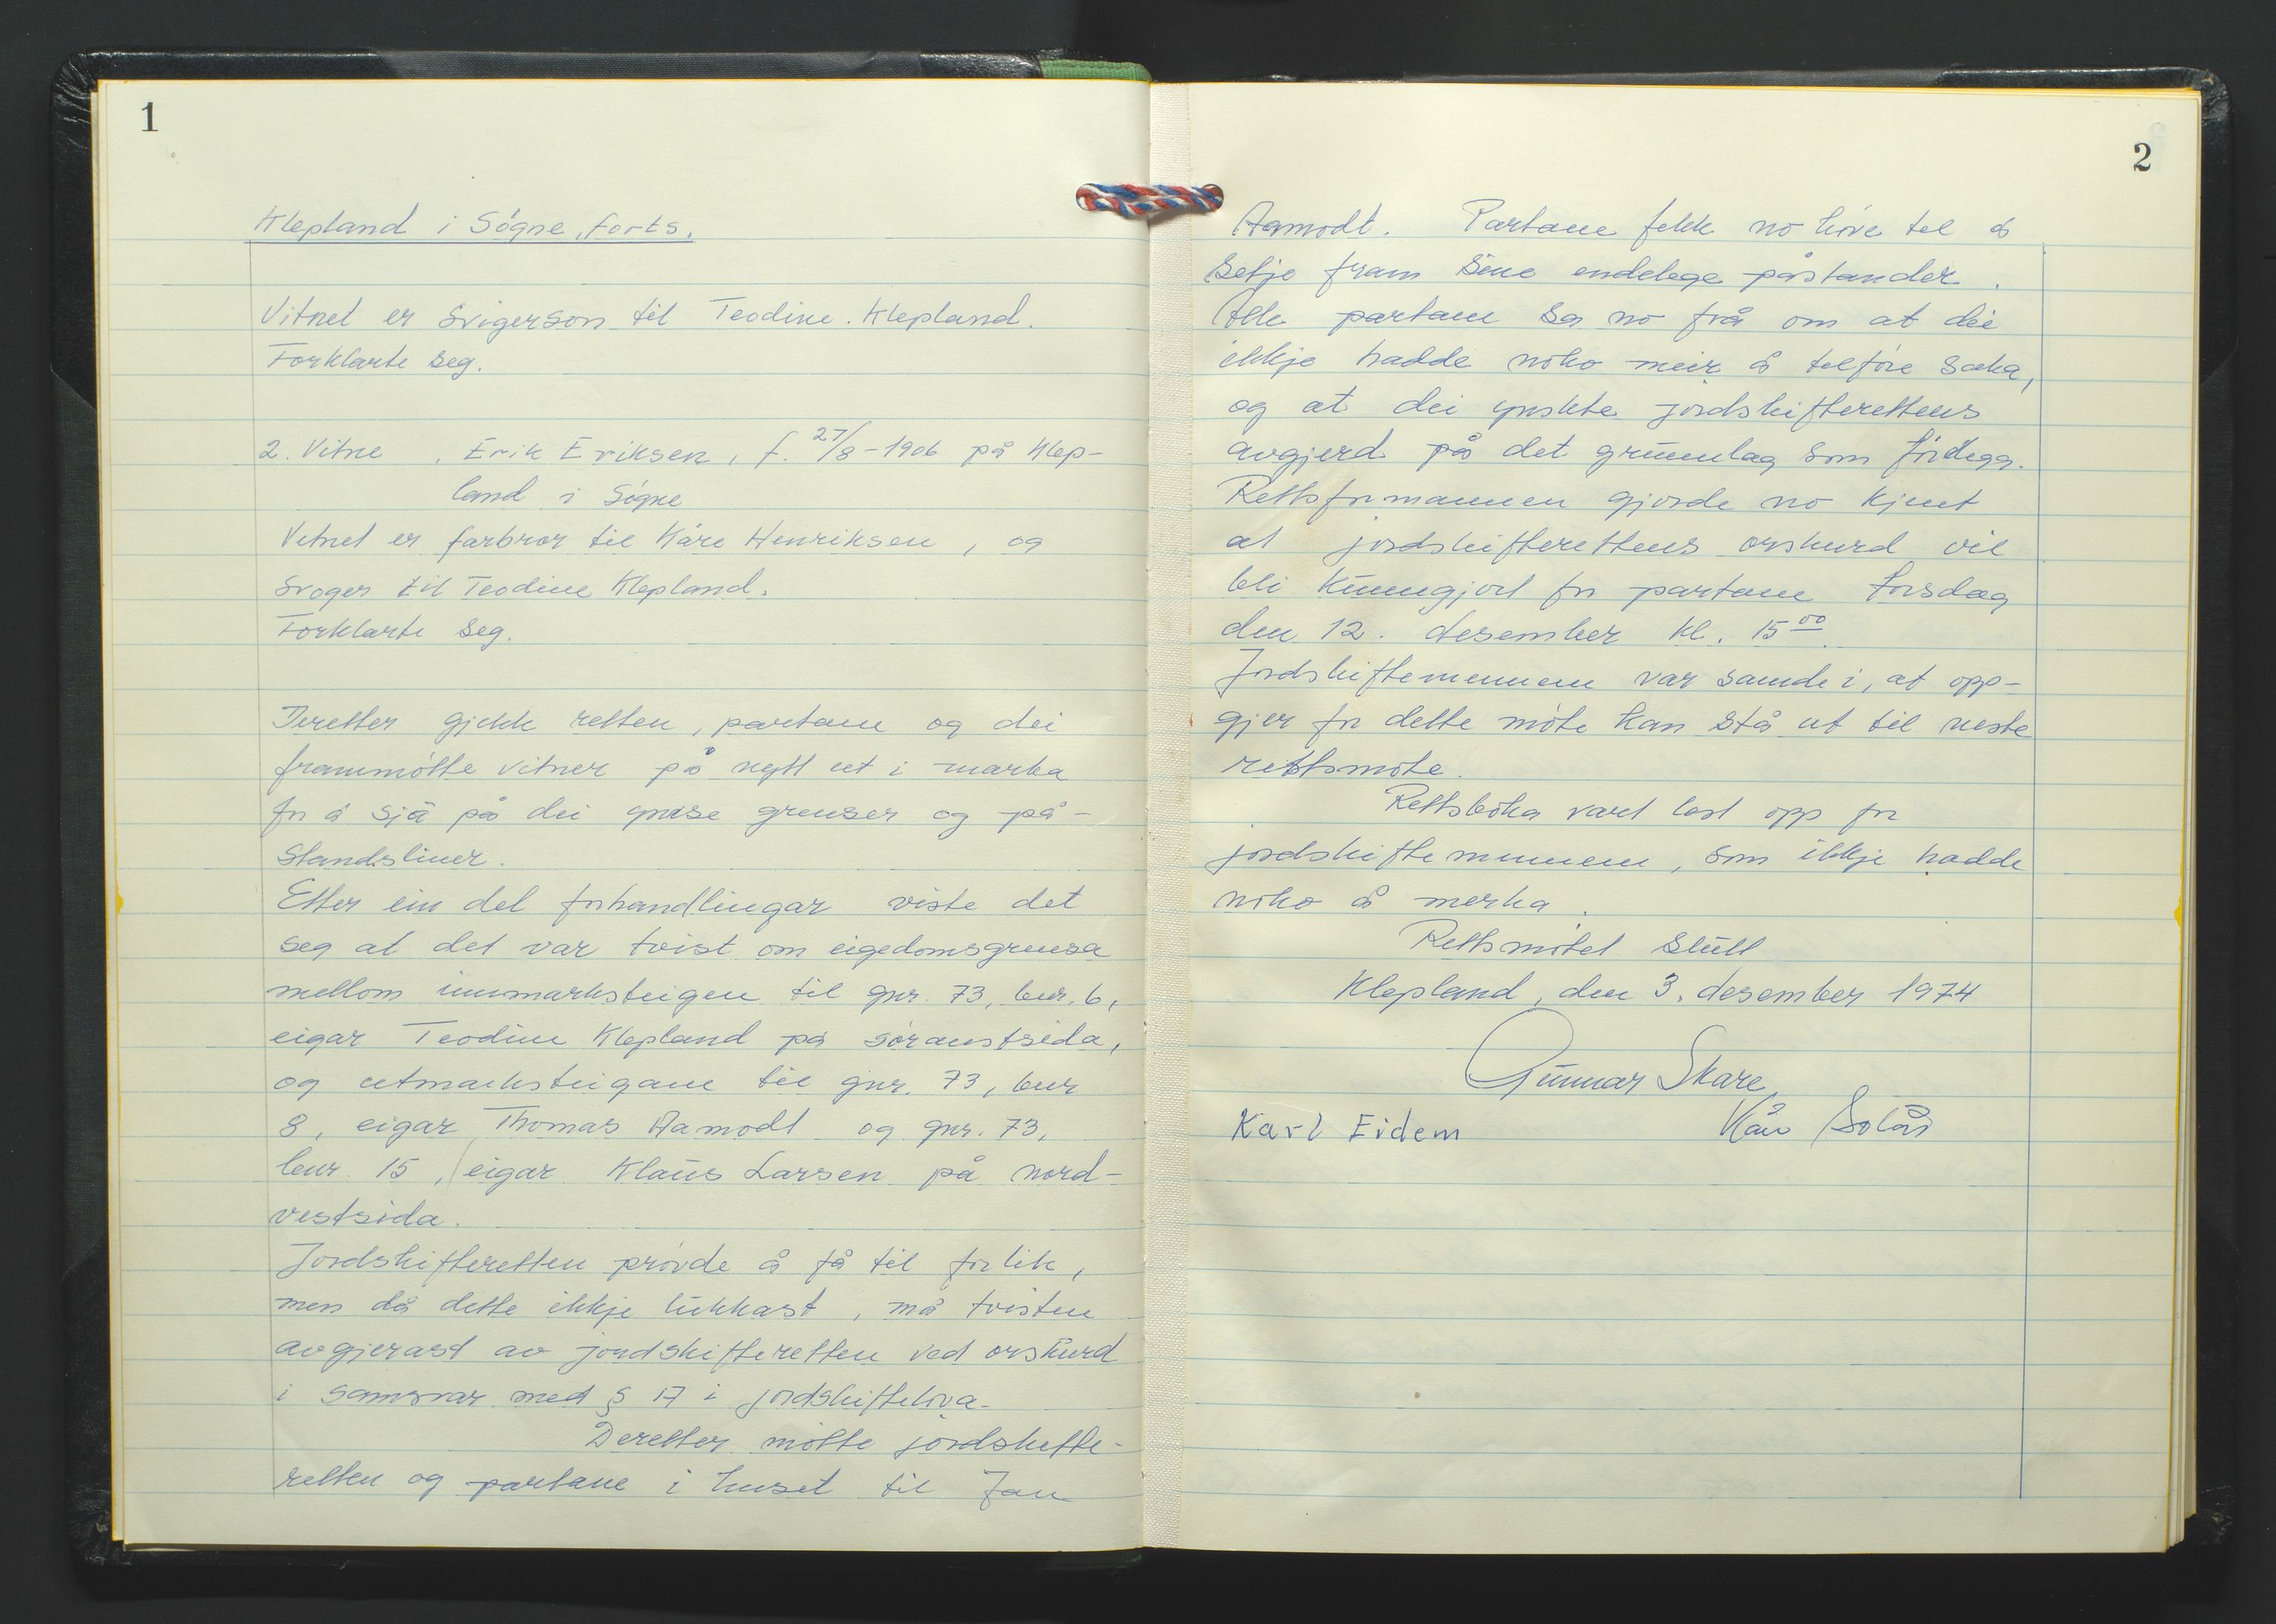 1
Klepland i Søgne, forts.
Vitnet er svigerson til Teodine Klepland.
Forklarte seg.
2. Vitne, Erik Eriksen, f. 27/8-1906 på Klep-
land i Søgne
Vitnet er farbror til Kåre Henriksen, og
svoger til Teodine Klepland.
Forklarte seg.
Deretter gjekk retten, partane og dei
frammøtte vitner på nytt ut i marka
for å sjå på dei ymse grenser og på-
standsliner.
Etter ein del forhandlingar viste det
seg at det var tvist om eigedomsgrensa
mellom innmarksteigen til gnr. 73, bnr. 6,
eigar Teodine Klepland på søraustsida,
og utmarksteigane til gnr. 73, bnr
8, eigar Thomas Aamodt og gnr. 73,
bnr. 15, eigar Klaus Larsen på nord-
vestsida.
Jordskifteretten prøvde å få til forlik,
men då dette ikkje lukkast, må tvisten
avgjerast av jordskifteretten ved orskurd
i samsvar med § 17 i jordskiftelova.
Deretter møtte jordskifte-
retten og partane i huset til Jan
2
Aamodt. Partane fekk no høve til å
setje fram sine endelege påstander.
Alle partane sa no frå om at dei
ikkje hadde noko meir å tilføre saka,
og at dei ynskte jordskifterettens
avgjerd på det grunnlag som føreligg.
Rettsformannen gjorde no kjent
at jordskifterettens orskurd vil
bli kunngjort for partane torsdag
den 12. desember kl. 15 00.
Jordskiftemennene var samde i, at opp-
gjer for dette møte kan stå ut til neste
rettsmøte.
Rettsboka vart lest opp for
jordskiftemennene, som ikkje hadde
noko å merka.
Rettsmøtet slutt
Klepland, den 3. desember 1974
Gunnar Skare
Karl Eidem Kåre Solås